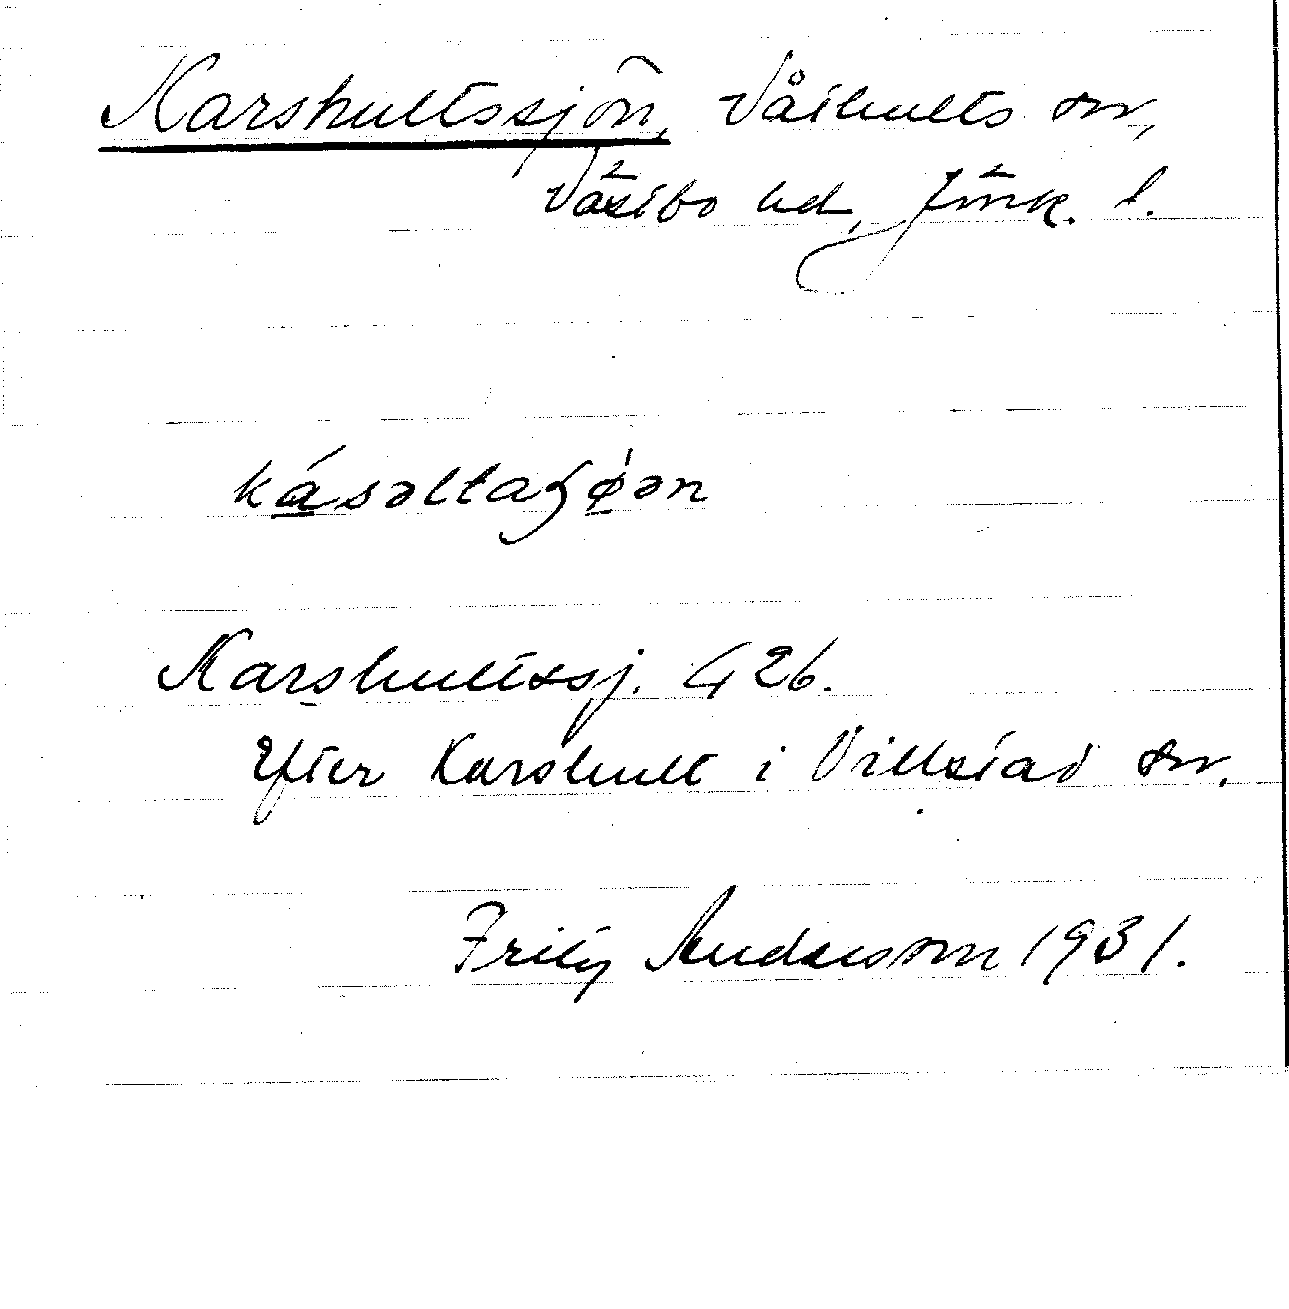 Karshultssjön, Våthults sn,
Västbo hd, Jönk. l.
kásəltaʃǿən
Karshultssj. G 26.
Efter Karshult i Villstad sn.
Fritz Andersson 1931.